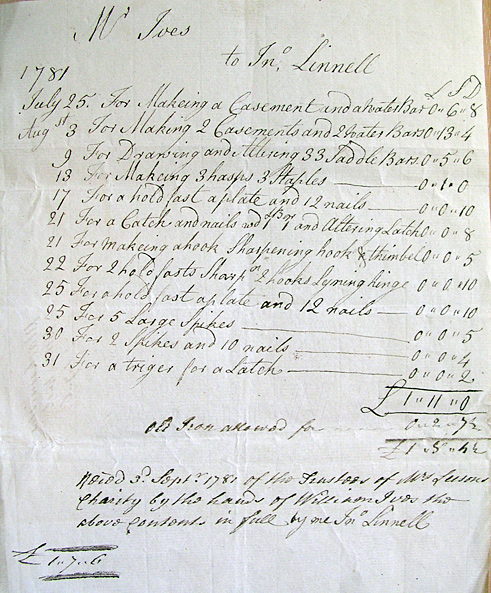 Mr Ives
to Jno, Linnell
1781 £ S D
July 25. For Makeing a Casement and a Water Bar 0 " 6 " 8
Augst 3 For Making 2 Casements and 2 Water Bars 0 " 13 " 4
9 For Drawing and Altering 33 Saddle Bars 0 " 5 " 6
13 For Making 3 hasps 3 Staples 0 " 1 " 0
17 For a hold fast a plate and 12 nails 0 " 0 " 10
21 For a Catch and nails and Altering Latch 0 " 0 " 8
21 For makeing a hook Sharpening hook & thimbel 0 " 0 " 5
22 For 2 hold fasts Sharp 2 hooks Lyning hinge 0 " 0 " 10
25 For a hold fast a plate and 12 nails 0 " 0 " 10
25 For 5 Large Spikes 0 " 0 " 5
30 For 2 Spikes and 10 nails 0 " 0 " 4
31 For a triger for a Latch 0 " 0 " 2
£ 1 " 11 " 0
Old Iron allowed for 0 " 2 " 7½
£ 1 " 4½
3d. Septr. 1781 of the Trustees of Mrs
Charity by the hands of William Ives the
above contents in full by me Jno Linnell
£ 1 " 7 " 6